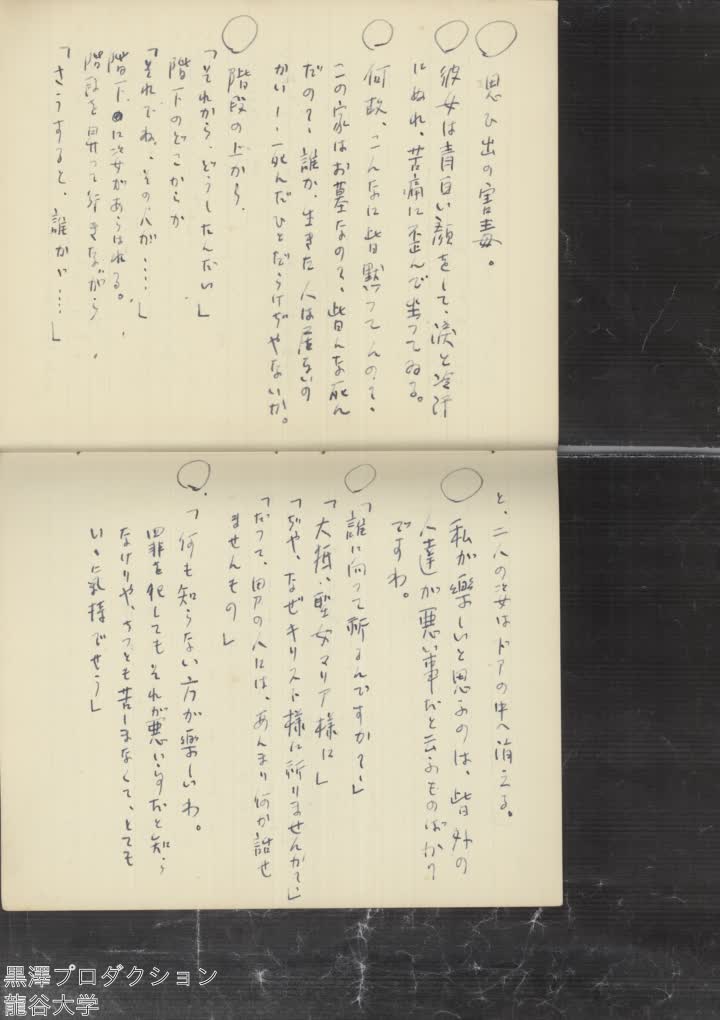 ○ 思ひ出の害毒。
○ 彼女は青白い顔をして、涙と冷汗
にぬれ、苦痛に歪んで坐つてゐる。
○ 何故、こんなに皆黙つてんの?、
この家はお墓なの?、皆んな死ん
だの?、誰か、生きた人は居ないの
かい!、死んだひとだらけぢやないか。
○ 階段の上から、
「それから、どうしたんだい」
階下のどこからか
「それでね、その人が……」
階下に彼女があらはれる。
階段を昇つて行きながら、
「さうすると、誰かゞ……」
と、二人の姿はドアの中へ消える。
○ 私が楽しいと思ふのは、皆外の
人達が悪い事だと云ふものばかり
ですわ。
○ 「誰に向つて祈るんですか?」
「大抵、聖女マリア様に」
「ぢや、なぜキリスト様に祈りませんか?」
「だつて、男の人には、あんまり何か話せ
ませんもの」
○ 「何も知らない方が楽しいわ。
罪を犯してもそれが悪いつみだと知ら
なけりや、ちつとも苦しまなくて、とても
いゝ気持でせう」
黒澤プロダクション
龍谷大学